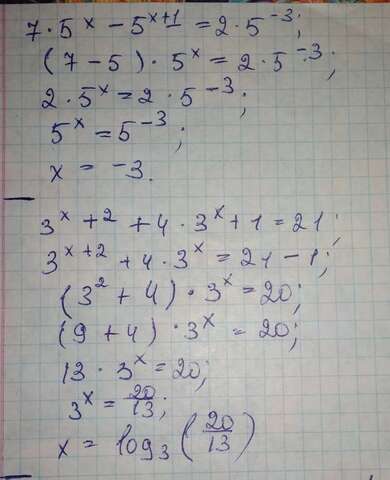 7 · 5^x − 5^{x+1} = 2 · 5^{−3};
(7 − 5) · 5^x = 2 · 5^{−3};
2 · 5^x = 2 · 5^{−3};
5^x = 5^{−3};
x = −3.
3^{x+2} + 4 · 3^x + 1 = 21;
3^{x+2} + 4 · 3^x = 21 − 1;
(3^2 + 4) · 3^x = 20;
(9 + 4) · 3^x = 20;
13 · 3^x = 20;
3^x = 20/13;
x = log_3 (20/13)